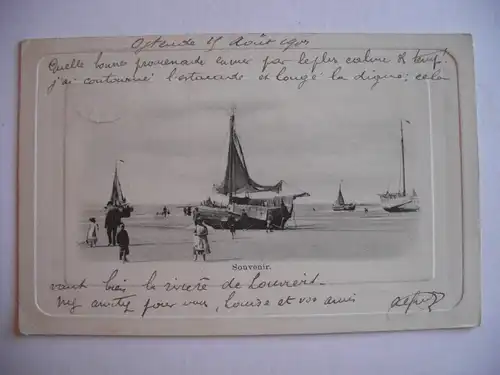 Ostende 25 Août 190
Quelle bonne promenade en mer par le plus calme des temps!
j'ai contourné l'estacade et longé la digue; cela
Souvenir.
vaut bien la rivière de Louvrent.
Mes amitiés pour vous, Louise et vos amis